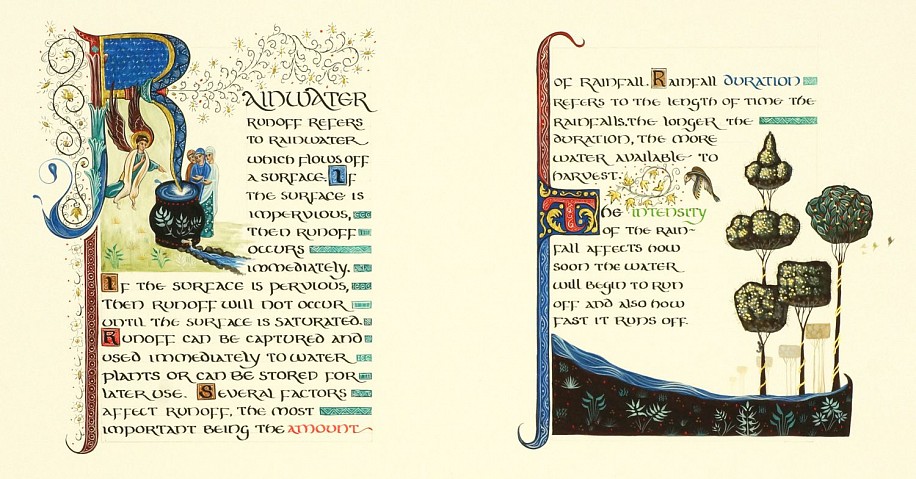 RAINWATER
RUNOFF REFERS
TO RAINWATER
WHICH FLOWS OFF
A SURFACE. IF
THE SURFACE IS
IMPERVIOUS,
THEN RUNOFF
OCCURS
IMMEDIATELY.
IF THE SURFACE IS PERVIOUS,
THEN RUNOFF WILL NOT OCCUR
UNTIL THE SURFACE IS SATURATED.
RUNOFF CAN BE CAPTURED AND
USED IMMEDIATELY TO WATER
PLANTS OR CAN BE STORED FOR
LATER USE. SEVERAL FACTORS
AFFECT RUNOFF, THE MOST
IMPORTANT BEING THE AMOUNT
OF RAINFALL. RAINFALL DURATION
REFERS TO THE LENGTH OF TIME THE
RAINFALLS, THE LONGER THE
DURATION, THE MORE
WATER AVAILABLE TO
HARVEST.
THE INTENSITY
OF THE RAIN-
FALL AFFECTS HOW
SOON THE WATER
WILL BEGIN TO RUN
OFF AND ALSO HOW
FAST IT RUNS OFF.